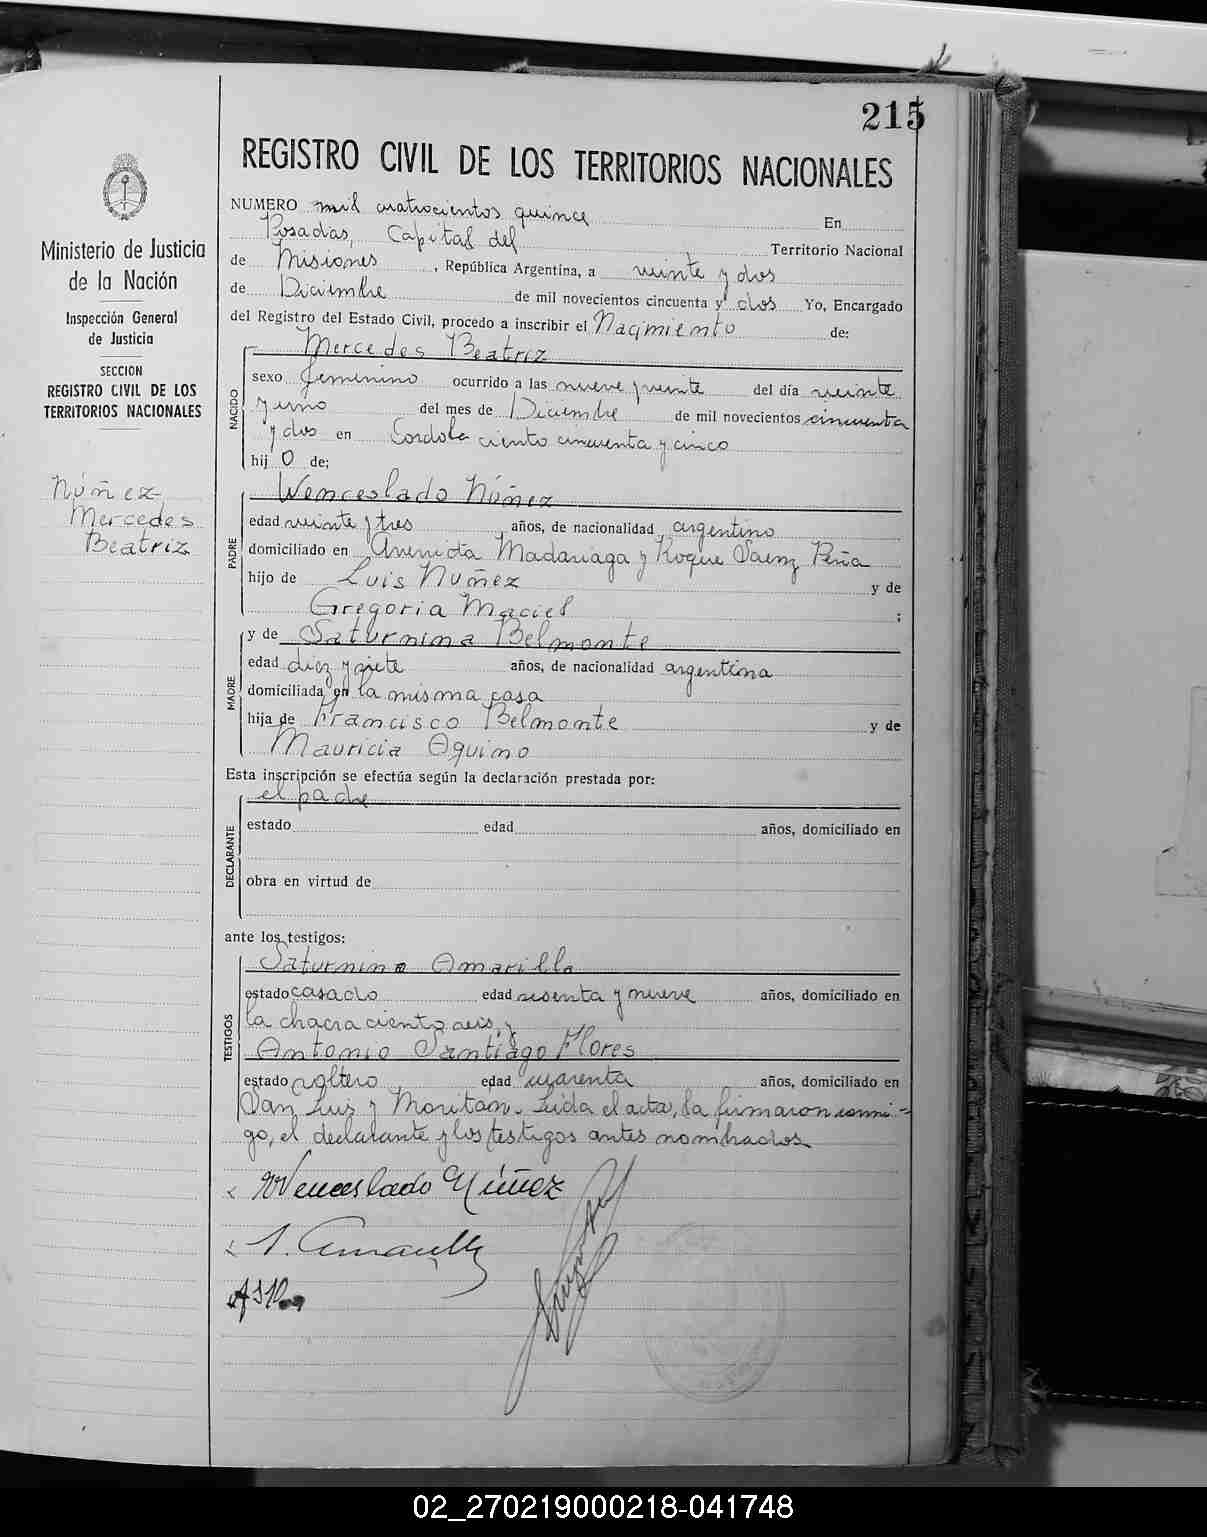 215
REGISTRO CIVIL DE LOS TERRITORIOS NACIONALES
Ministerio de Justicia
de la Nación
Inspección General
de Justicia
SECCION
REGISTRO CIVIL DE LOS
TERRITORIOS NACIONALES
Núñez
Mercedes
Beatriz
NUMERO mil cuatrocientos quince En
Posadas, Capital del Territorio Nacional
de Misiones, República Argentina, a veinte y dos
de Diciembre de mil novecientos cincuenta y dos Yo, Encargado
del Registro del Estado Civil, procedo a inscribir el Nacimiento de:
NACIDO
Mercedes Beatriz
sexo femenino ocurrido a las nueve y veinte del día veinte
y uno del mes de Diciembre de mil novecientos cincuenta
y dos en Cordoba ciento cincuenta y cinco
hij O de;
PADRE
Wenceslado Núñez
edad veinte y tres años, de nacionalidad argentino
domiciliado en Avenida Madariaga y Roque Saenz Peña
hijo de Luis Nuñez y de
Gregoria Maciel ;
MADRE
y de Saturnina Belmonte
edad diez y siete años, de nacionalidad argentina
domiciliada en la misma casa
hija de Francisco Belmonte y de
Mauricia Aquino
Esta inscripción se efectúa según la declaración prestada por:
DECLARANTE
el padre
estado edad años, domiciliado en
obra en virtud de
ante los testigos:
TESTIGOS
Saturnino Amarilla
estado casado edad sesenta y nueve años, domiciliado en
la chacra ciento seis, y
Antonio Santiago Flores
estado soltero edad cuarenta años, domiciliado en
San Luis y Moritan. Leida el acta, la firmaron conmi-
go, el declarante y los testigos antes nombrados
Wenceslado Núñez
S. Amarilla
02_270219000218-041748